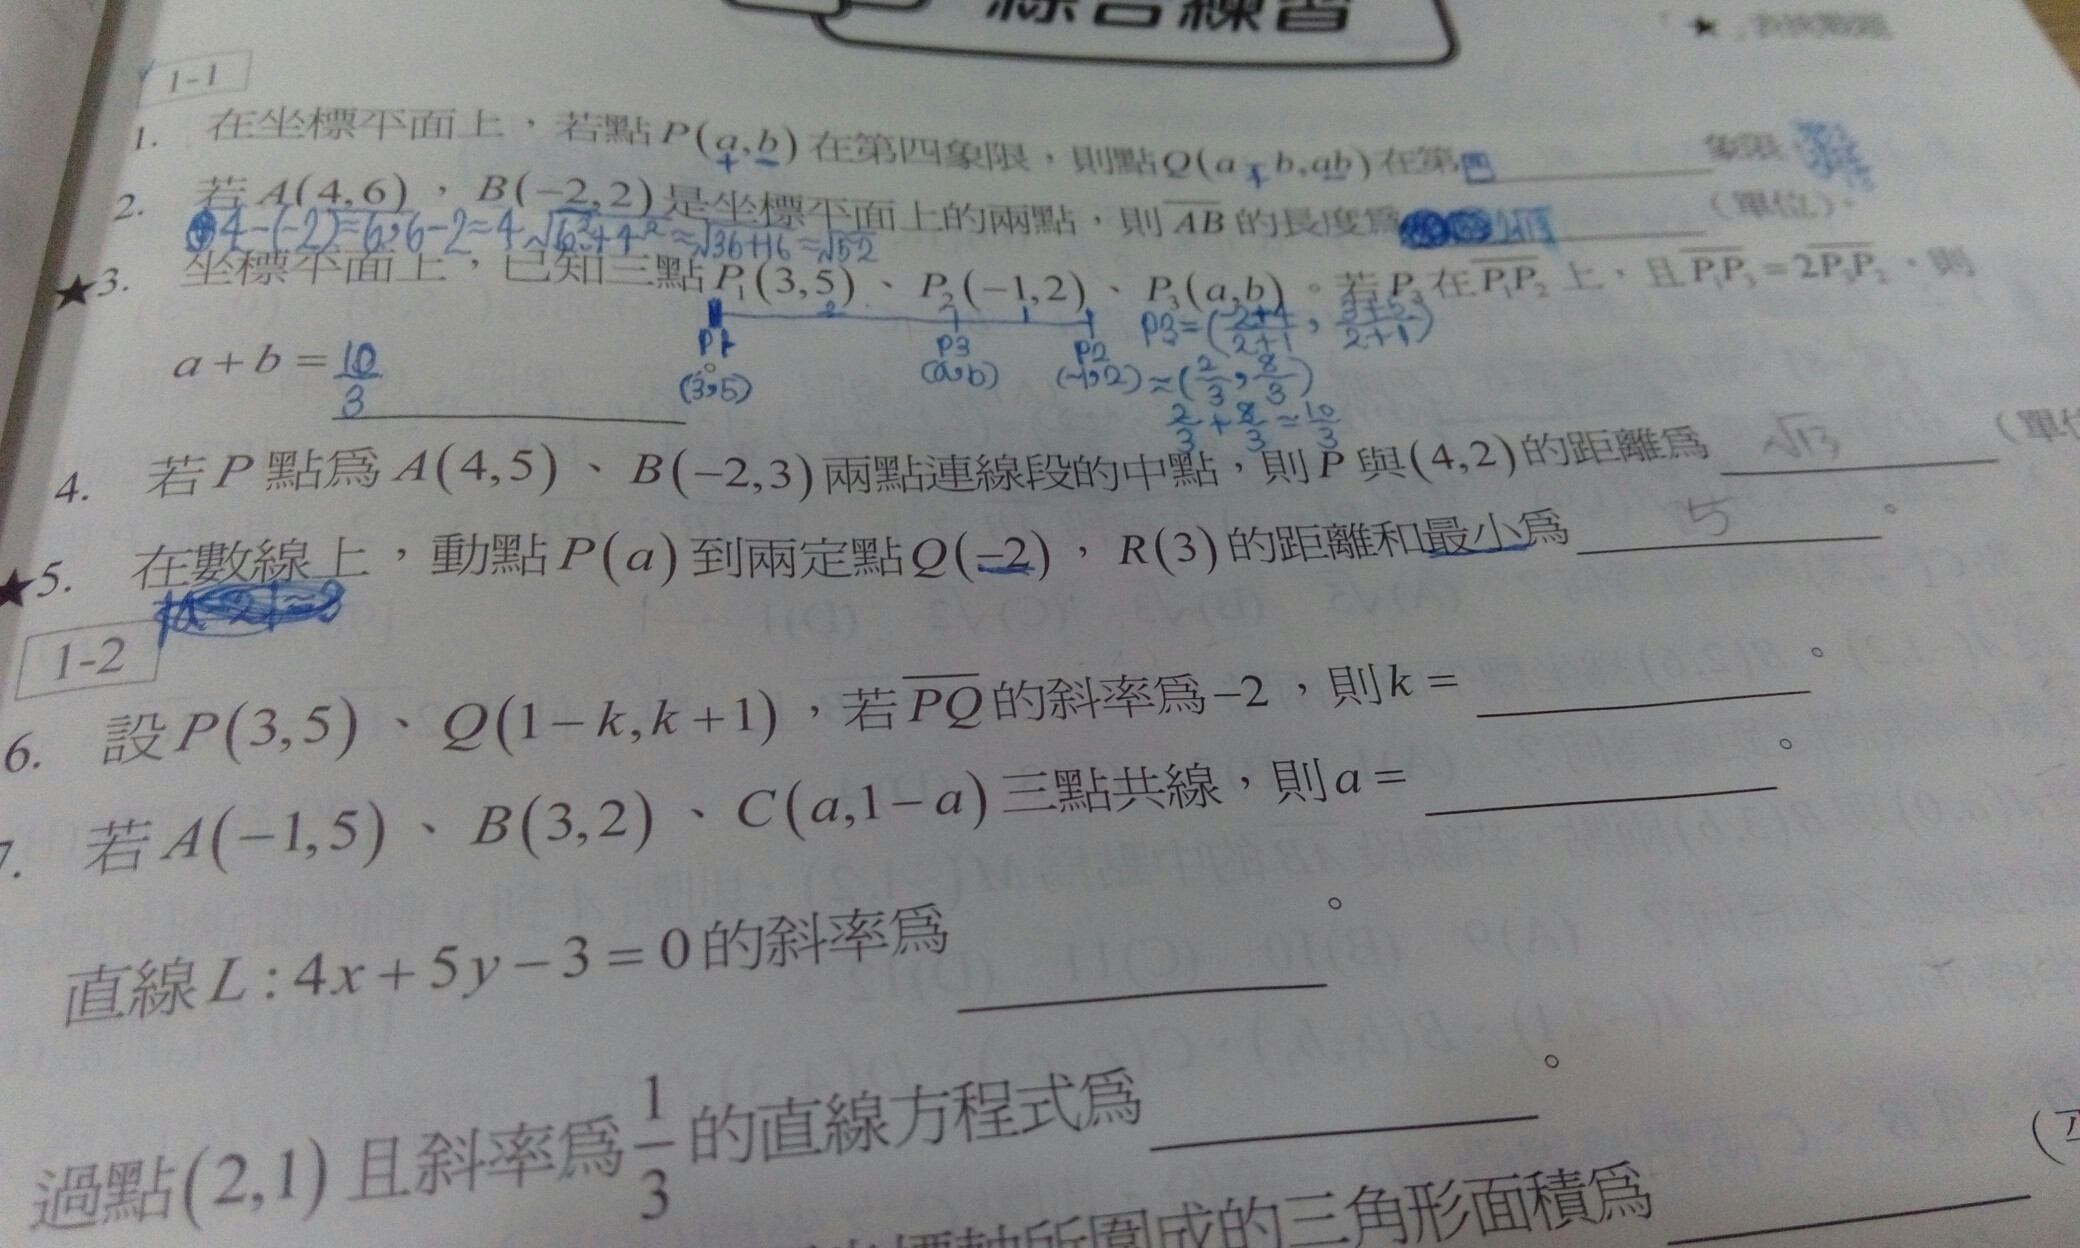 綜合練習
「★」表挑戰題
1-1
1. 在坐標平面上，若點P(a,b)在第四象限，則點Q(a-b,ab)在第四象限
+ - + -
2. 若A(4,6)，B(-2,2)是坐標平面上的兩點，則AB的長度為 （單位）。
4-(-2)=6，6-2=4 √6²+4²=√36+16=√52
★3. 坐標平面上，已知三點P₁(3,5)、P₂(-1,2)、P₃(a,b)。若P₃在P₁P₂上，且P₁P₃=2P₃P₂，則
2 1
P1 P3 P2
(3,5) (a,b) (-1,2)
P3=(-2+4/2+1, 3+5/2+1)
=(2/3, 8/3)
2/3+8/3=10/3
a+b=10/3
4. 若P點為A(4,5)、B(-2,3)兩點連線段的中點，則P與(4,2)的距離為 √13 （單位
★5. 在數線上，動點P(a)到兩定點Q(-2)，R(3)的距離和最小為 5 。
1-2
6. 設P(3,5)、Q(1-k,k+1)，若PQ的斜率為-2，則k= 。
7. 若A(-1,5)、B(3,2)、C(a,1-a)三點共線，則a= 。
直線L:4x+5y-3=0的斜率為 。
過點(2,1)且斜率為1/3的直線方程式為 。
所圍成的三角形面積為 （平